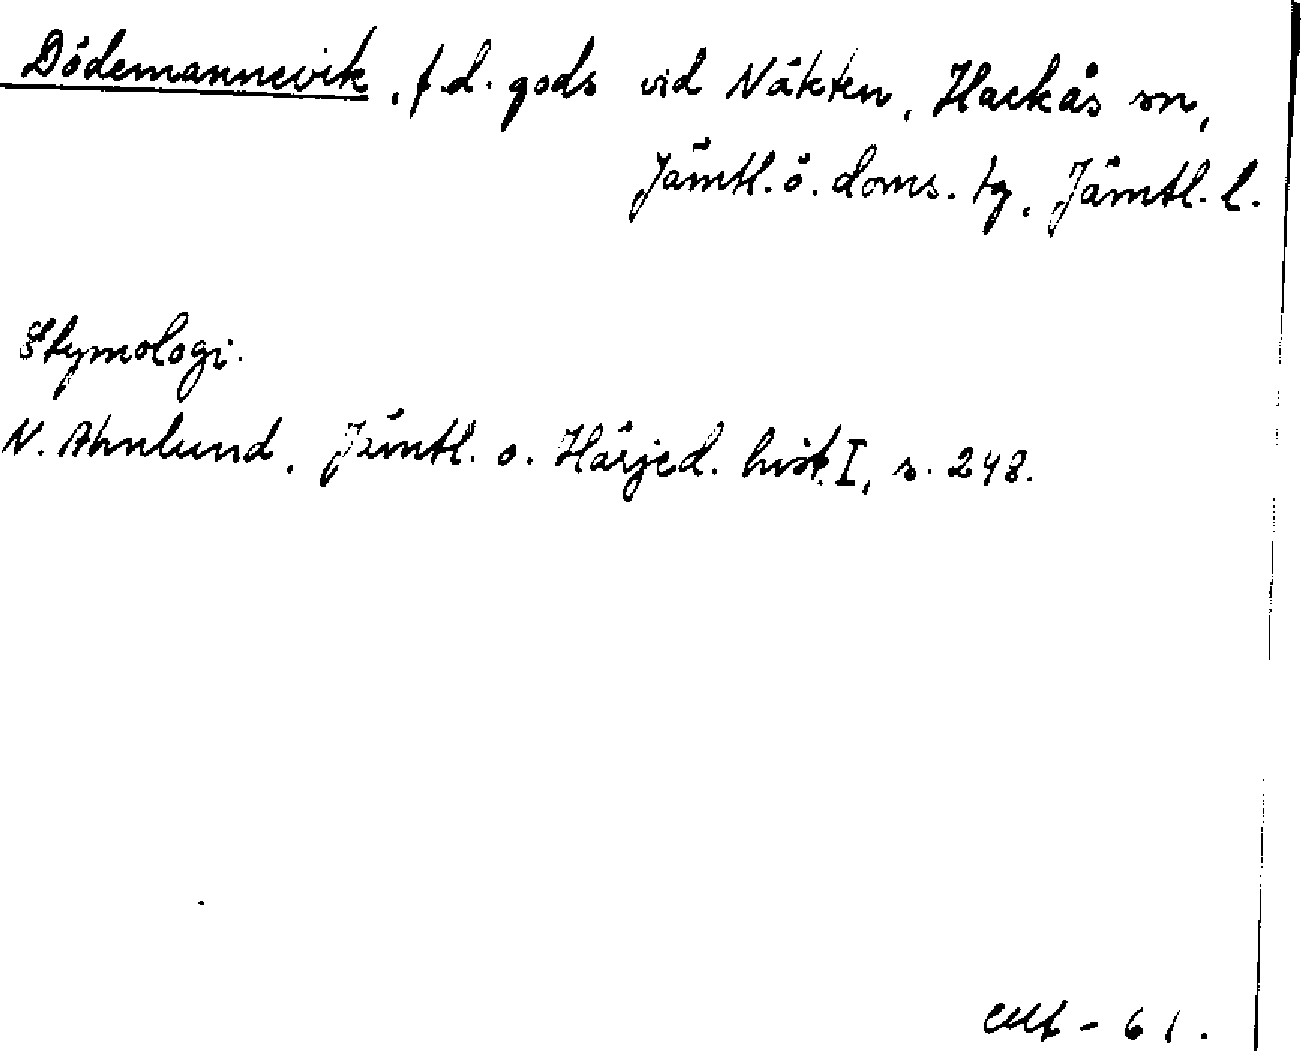 Dödemannevik, f.d. gods vid Näkten, Hackås sn,
Jämtl. ö. doms. tg, Jämtl. l.
Etymologi.
N. Ahnlund, Jämtl. o. Härjed. hist. I, s. 248.
- 61.